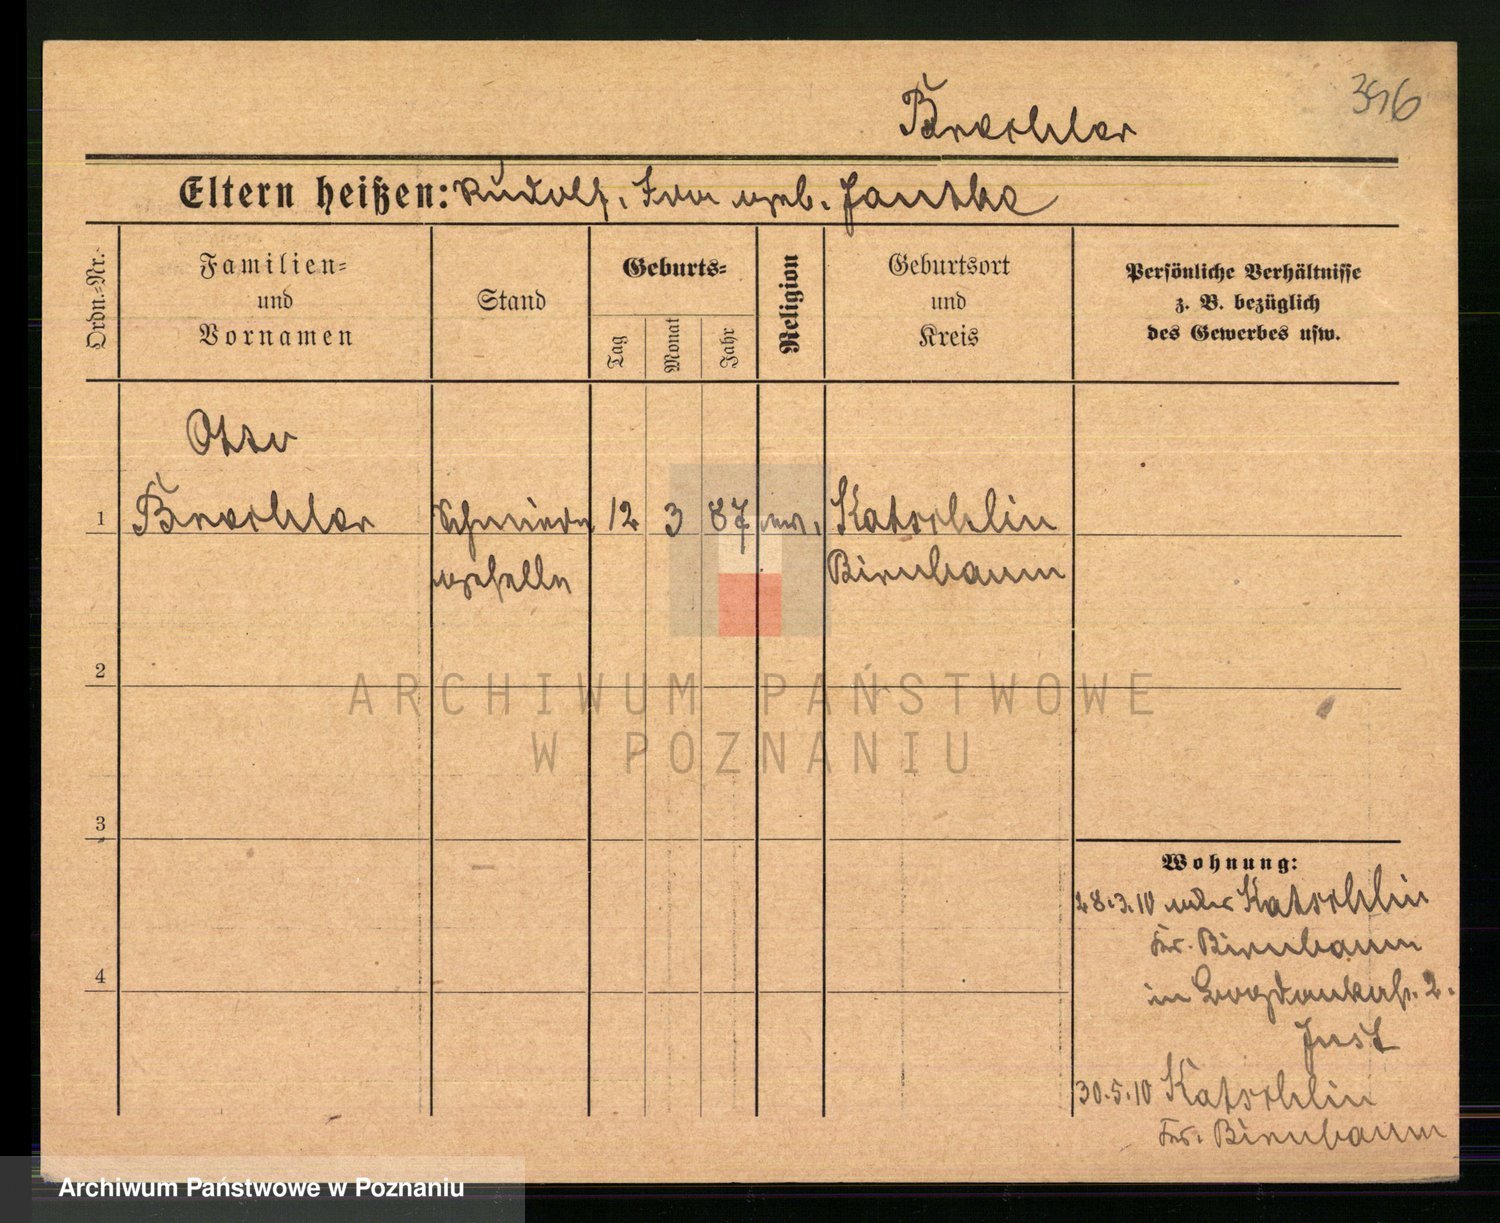 396
Braechler
Eltern heißen: Rudolf, Ida geb. Jantke
Ordn.-Nr.
Familien-
und
Vornamen
Stand
Geburts-
Tag
Monat
Jahr
Religion
Geburtsort
und
Kreis
Persönliche Verhältnisse
z. B. bezüglich
des Gewerbes usw.
Otto
1 Schmiede 12 3 87 Katschlin
geselle Birnbaum
2
ARCHIWUM PAŃSTWOWE
W POZNANIU
3
Wohnung:
28.3.10 Katschlin
Kr. Birnbaum
in 2.
Just
4
30.5.10 Katschlin
Kr. Birnbaum
Archiwum Państwowe w Poznaniu